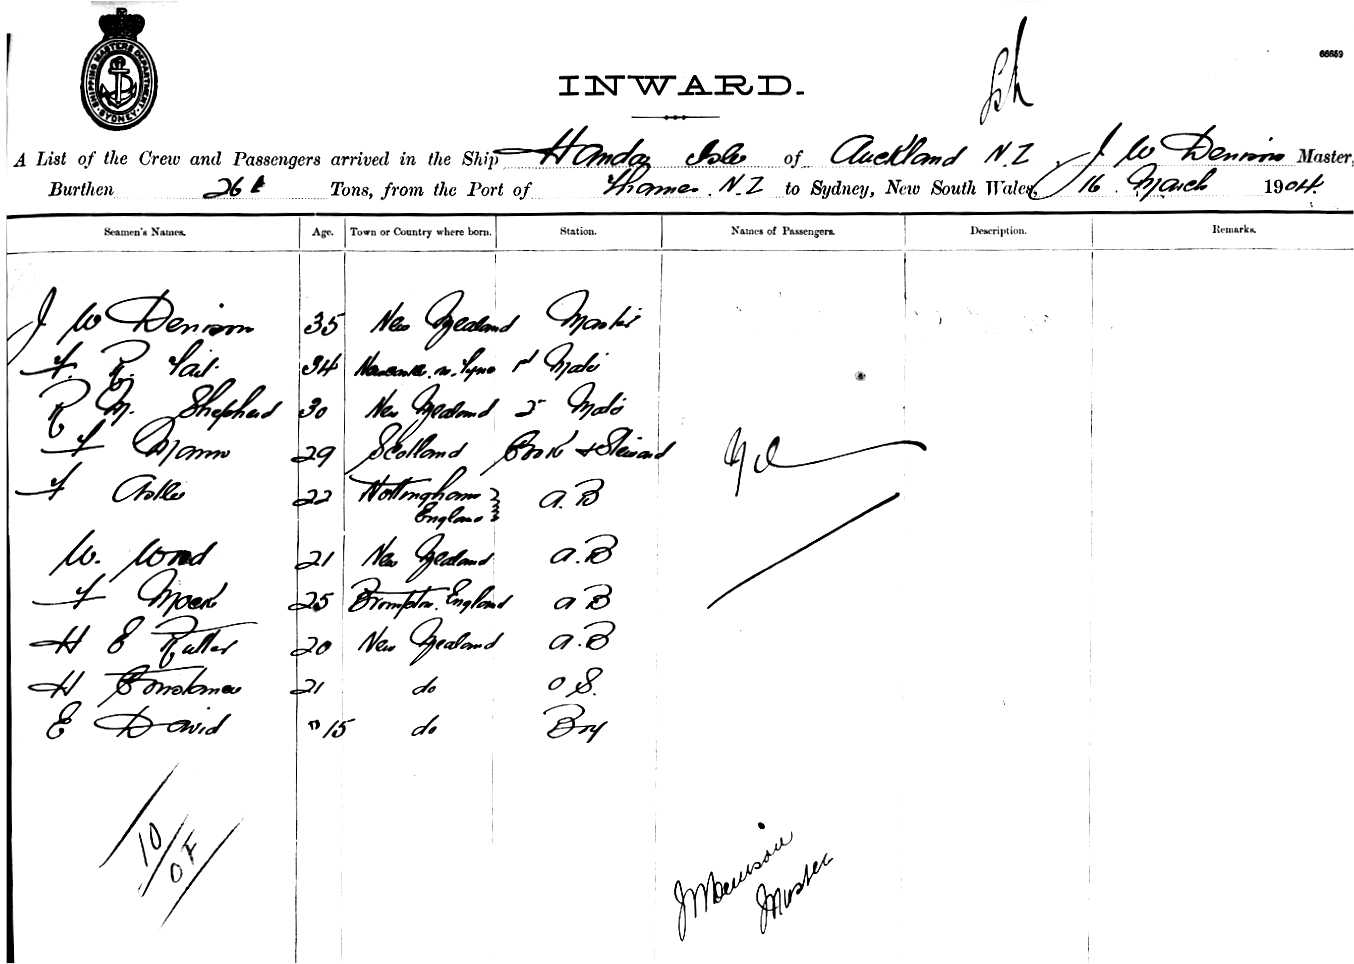 SHIPPING MASTERS DEPARTMENT
SYDNEY
66659
INWARD.
A List of the Crew and Passengers arrived in the Ship Handa Isle of Auckland N.Z. J W Denison Master,
Burthen 264 Tons, from the Port of Thames. N.Z to Sydney, New South Wales, 16 March 1904.
Seamen's Names. Age. Town or Country where born. Station. Names of Passengers. Description. Remarks.
J W Denison 35 New Zealand Master
F. R. Tait 34 Newcastle. on. Tyne 1st Mate
R M. Shepherd 30 New Zealand 2 Mate
F Mann 29 Scotland Cook & Steward
F 22 Nottingham A.B
England
W. Wood 21 New Zealand A.B
F 25 Brompton. England A B
H E Rutter 20 New Zealand A.B
H Constance 21 do O S.
E David 15 do Boy
10
J W Denison
Master